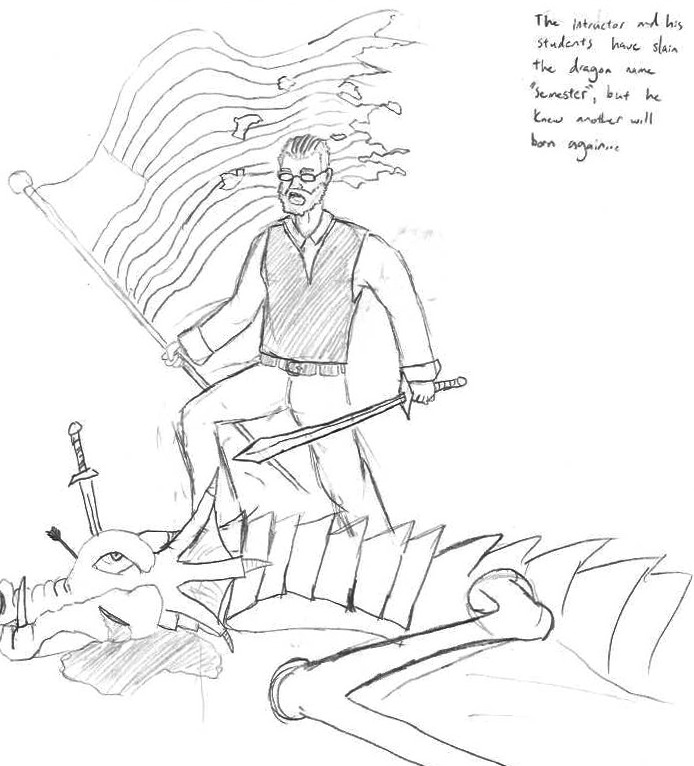 The intructor and his
students have slain
the dragon name
"semester", but he
knew another will
born again...